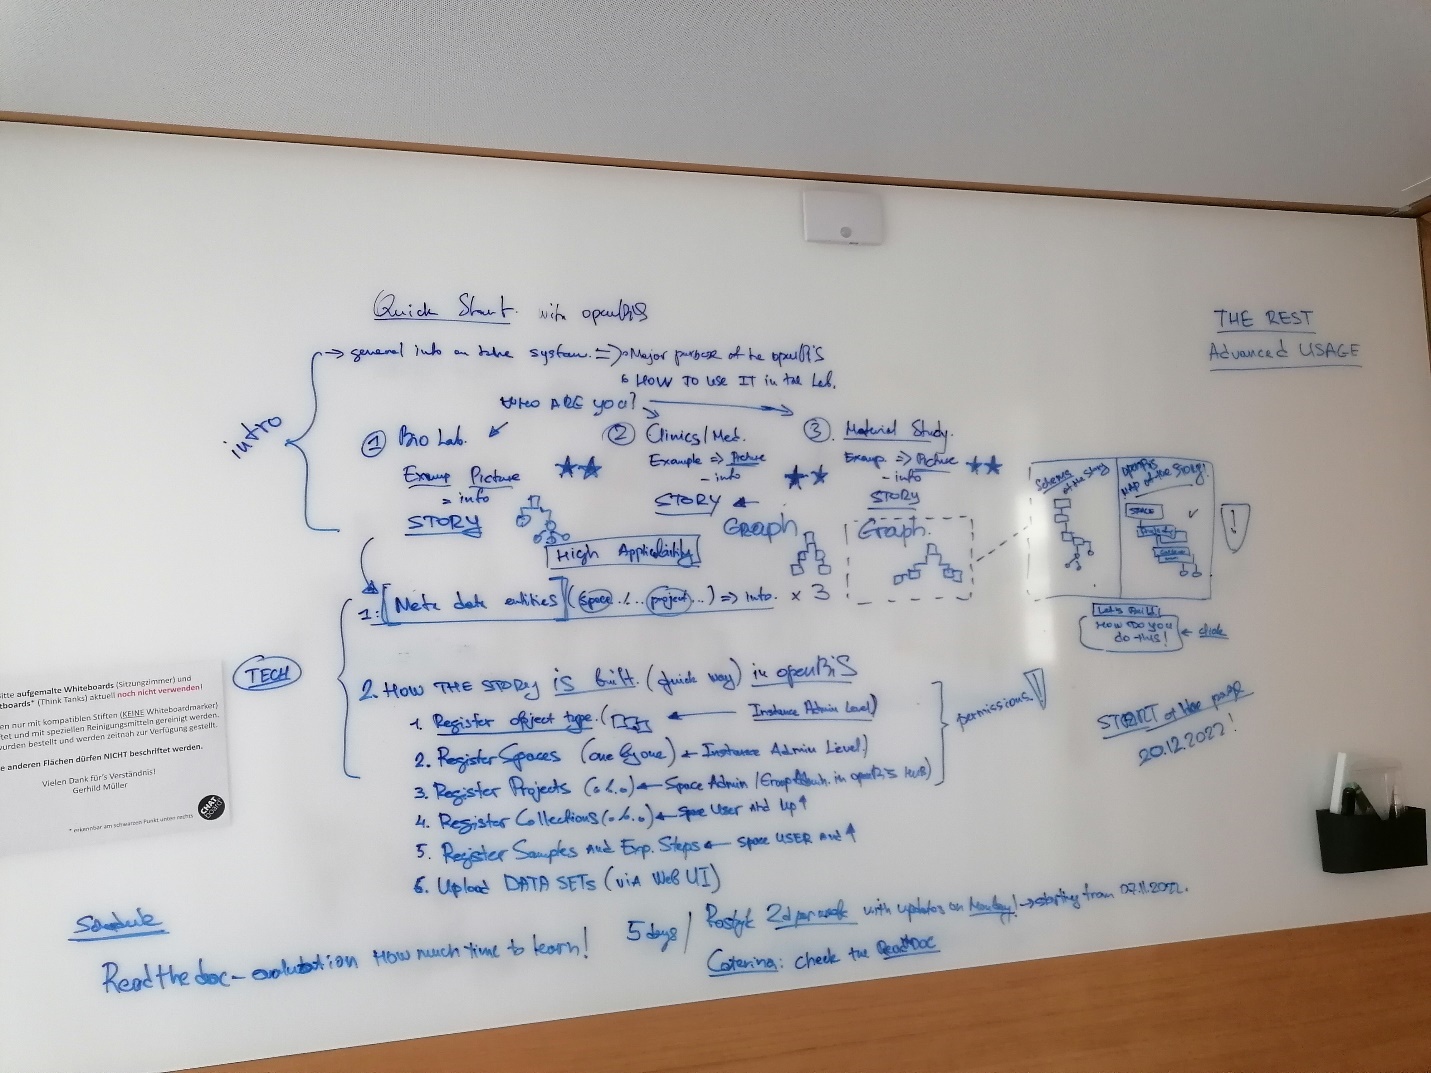 Quick Start with openBiS
THE REST
Advanced USAGE
intro
→ general info on the system. ⇒ Major purpose of the openBiS
HOW TO USE IT in the Lab.
WHO ARE YOU?
① Bio Lab.
Examp Picture
= info
STORY
② Clinics/Med.
Example ⇒ Picture
- info
STORY
Graph
③. Material Study.
Examp. ⇒ Picture
- info
STORY
Graph.
High Applicability
Schema of the Story
openBiS MAP of the STORY!
SPACE
Project
Let's Build
HOW DO YOU
do this!
← click
1: Meta data entities (space /... project...) ⇒ info. × 3
TECH
2. HOW THE STORY is built. (quick way) in openBiS
1. Register object type. ( ← Instance Admin Level)
2. Register Spaces (one by one) ← Instance Admin Level)
3. Register Projects (o.b.o) ← Space Admin / Group Admin. in openBiS
4. Register Collections (o.b.o) ← Space User and up ↑
5. Register Samples and Exp. Steps ← Space USER and ↑
6. Upload DATA SETs (via Web UI)
permissions!
START of the page
20.12.2022!
Schedule
Read the doc - evaluation How much time to learn!
5 days / 2d per week with updates on Monday! → starting from 07.11.2022.
Catering: check the ReadtDOC
itte aufgemalte Whiteboards (Sitzungzimmer) und
tboards* (Think Tanks) aktuell noch nicht verwenden!
en nur mit kompatiblen Stiften (KEINE Whiteboardmarker)
tet und mit speziellen Reinigungsmitteln gereinigt werden.
urden bestellt und werden zeitnah zur Verfügung gestellt.
e anderen Flächen dürfen NICHT beschriftet werden.
Vielen Dank für's Verständnis!
Gerhild Müller
* erkennbar am schwarzen Punkt unten rechts
CHAT board